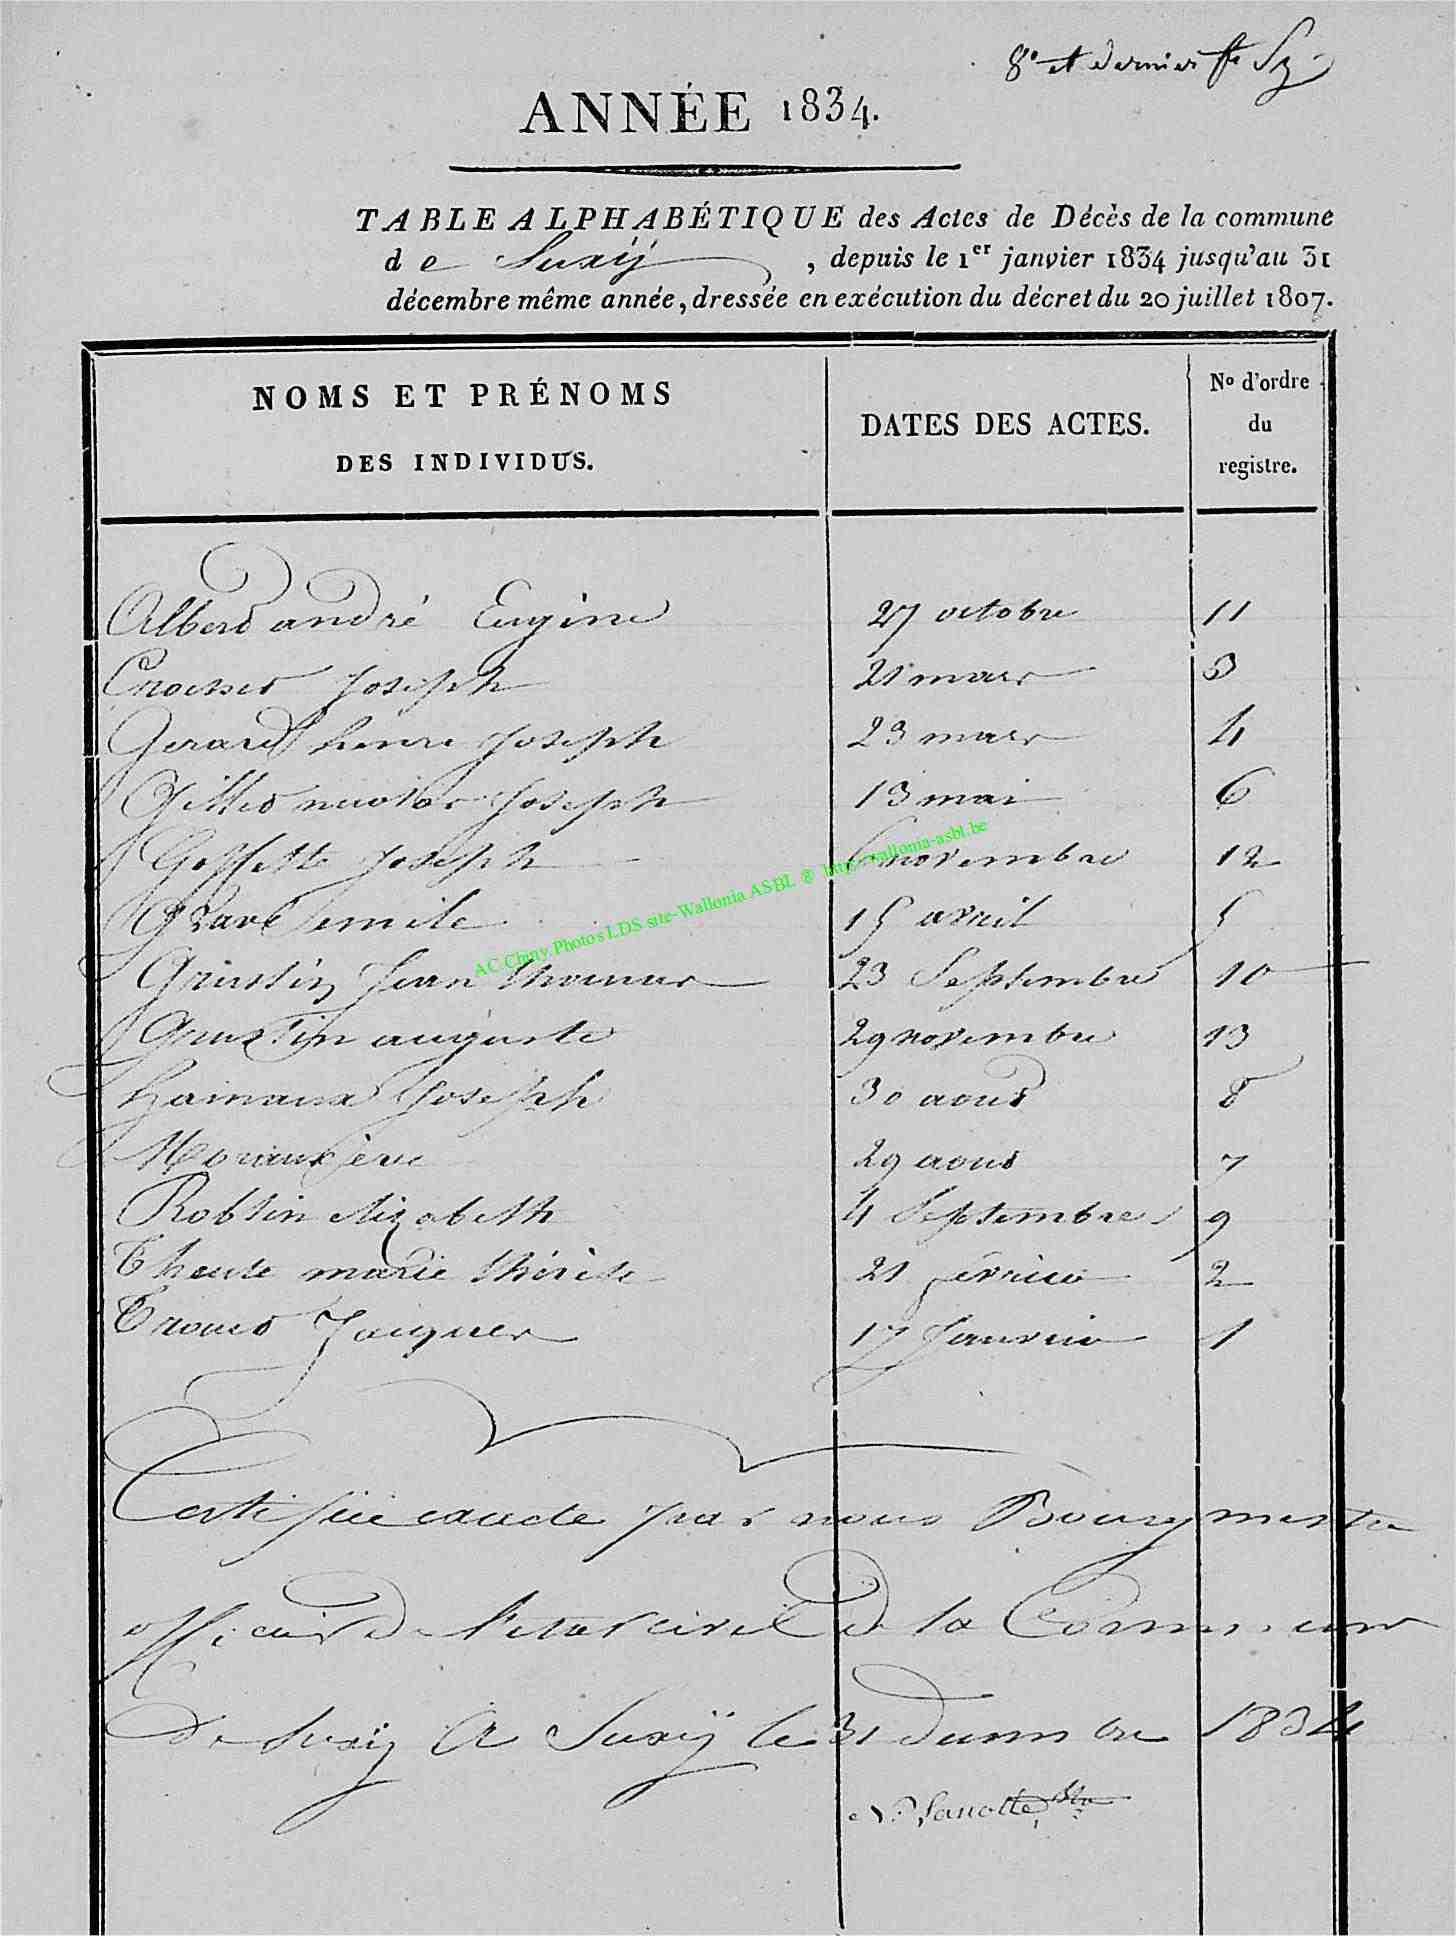 8e et dernier
ANNÉE 1834.
TABLE ALPHABÉTIQUE des Actes de Décès de la commune
de Suxÿ, depuis le 1er janvier 1834 jusqu'au 31
décembre même année, dressée en exécution du décret du 20 juillet 1807.
NOMS ET PRÉNOMS
DES INDIVIDUS.
DATES DES ACTES.
No d'ordre
du
registre.
Alberd andré Eugène 27 octobre 11
Joseph 21 mars 3
Gerard henri Joseph 23 mars 4
Gilles nicolas Joseph 13 mai 6
Goffette Joseph 6 novembre 12
Gravé emile 15 avril 5
Grustin Jean thomas 23 Septembre 10
Grustin auguste 29 novembre 13
hainaux Joseph 30 aoud 8
Moriaux ève 29 aoud 7
Roblin elizabeth 4 Septembre 9
marie thérèse 21 février 2
Jacques 17 Janvier 1
AC Chiny Photos LDS site-Wallonia ASBL ® http://wallonia-asbl.be
Certifiée exacte par nous Bourgmestre
officier de l'etat civil de la Commune
de Suxÿ A Suxÿ le 31 décembre 1834